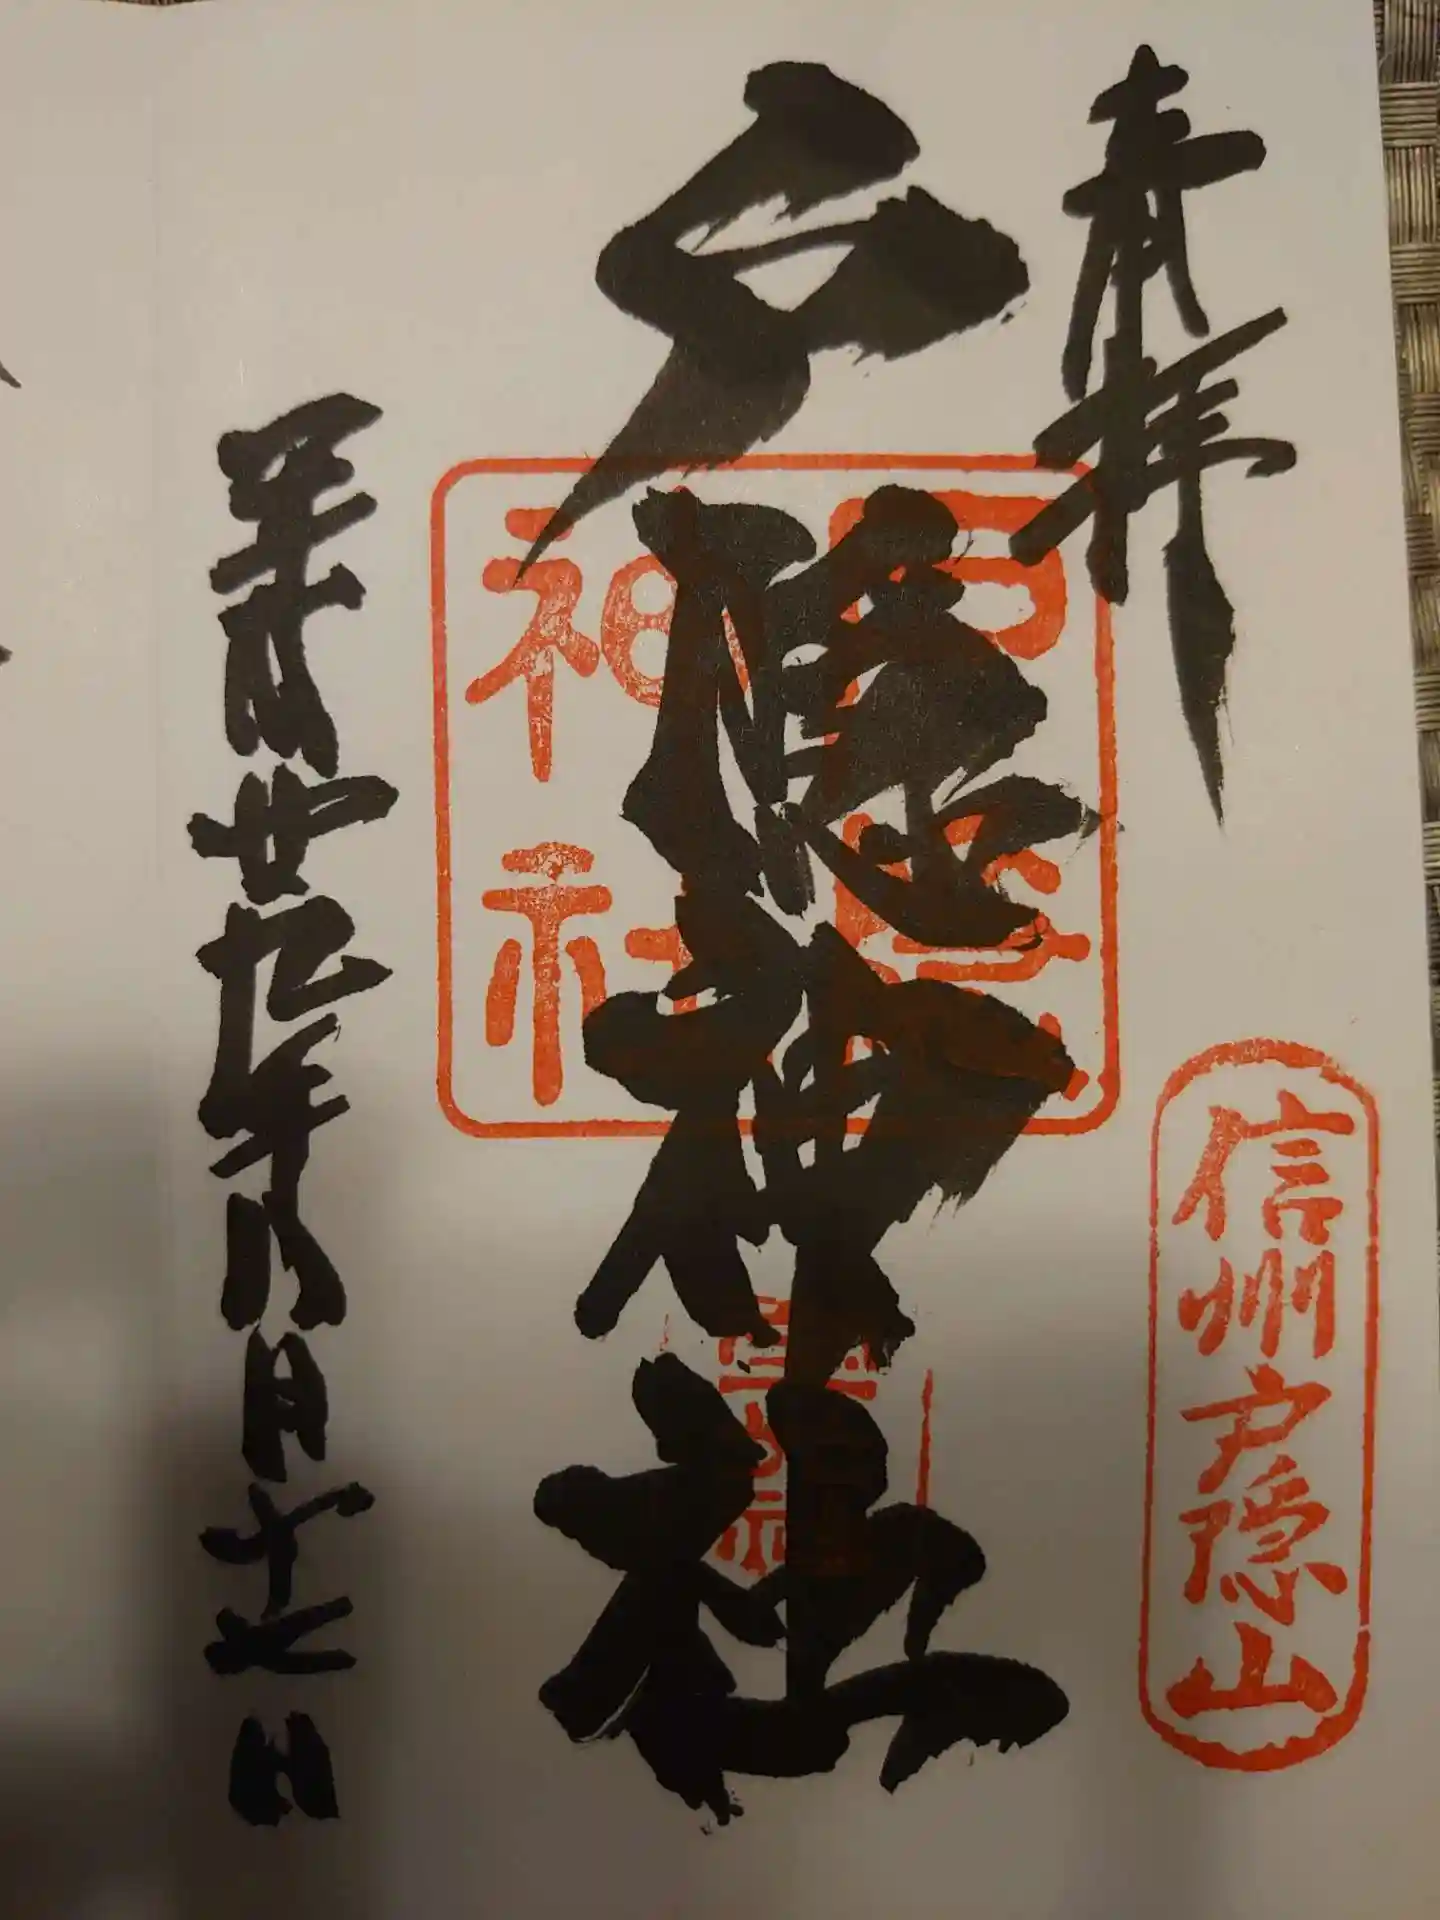 奉拝
信州戸隠山
戸隠神社
戸隠
神社
平成廿九年八月十七日